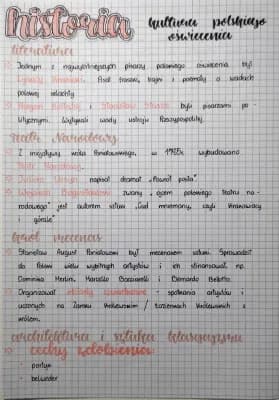 historia kultura polskiego
oświecenia
literatura
Jednym z najwybitniejszych pisarzy polskiego oświecenia był
Ignacy Krasicki. Pisał fraszki, bajki i poematy o wadach
polskiej szlachty
Hugon Kołłątaj i Stanisław Staszic byli pisarzami po-
litycznymi. Wytykali wady ustroju Rzeczypospolitej
Teatr Narodowy
Z inicjatywy króla Poniatowskiego, w 1765r. wybudowano
Teatr Narodowy.
Julian Ursyn napisał dramat „Powrót posła"
Wojciech Bogusławski zwany „ojcem polskiego teatru na-
rodowego" jest autorem sztuki „Cud mniemany, czyli Krakowiacy
i górale"
król mecenas
Stanisław August Poniatowski był mecenasem sztuki. Sprowadził
do Polski wielu wybitnych artystów i ich sfinansował, np.
Dominika Merlini, Marcello Bacciarelli i Bernardo Bellotto.
Organizował obiady czwartkowe - spotkania artystów i
uczonych na Zamku Królewskim / Łazienkach Królewskich z
królem.
architektura i sztuka klasycyzmu
cechy zdobienia:
- portyk
- belweder